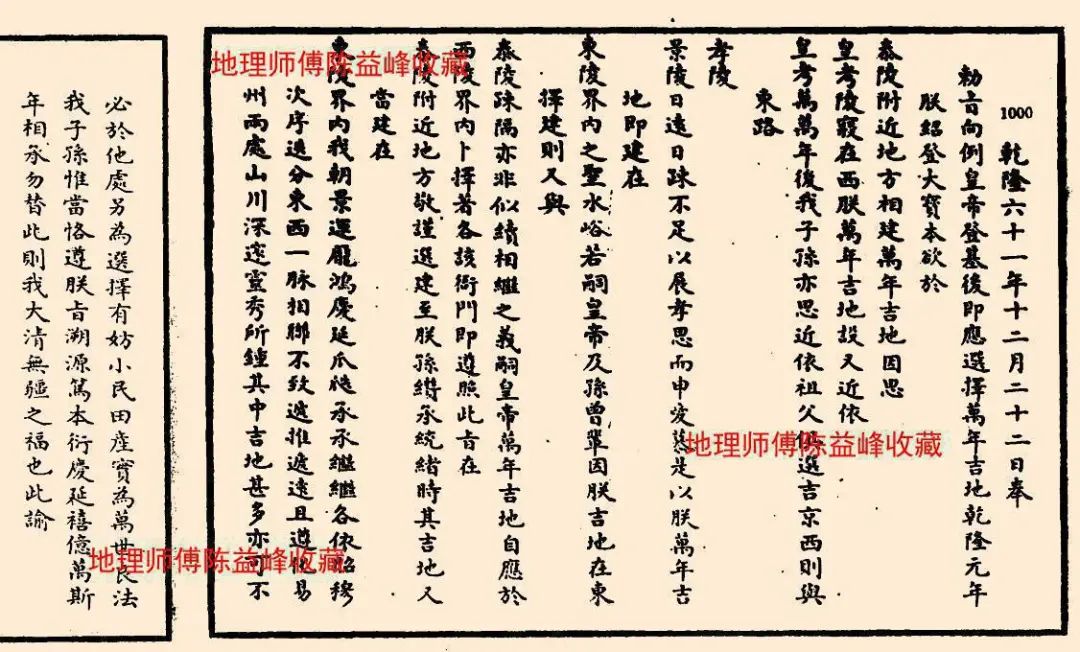 1000 乾隆六十一年十二月二十二日奉
勅旨向例皇帝登基後即應選擇萬年吉地乾隆元年
朕紹登大寶本欲於
泰陵附近地方相建萬年吉地因思
皇考陵寢在西朕萬年吉地設又近依
皇考萬萬年後我子孫亦思近依祖父選吉京西則與
東路
孝陵
景陵日遠日疎不足以展孝思而申愛慕是以朕萬年吉
地即建在
東陵界內之聖水峪若嗣皇帝及孫曾輩因朕吉地在東
擇建則又與
泰陵疎隔亦非似續相繼之義嗣皇帝萬年吉地自應於
西陵界內卜擇著各該衙門即遵照此旨在
泰陵附近地方敬謹選建至朕孫纘承統緒時其吉地又
當建在
東陵界內我朝景運龐鴻慶延瓜瓞承承繼繼各依昭穆
次序遞分東西一脉相聯不致遞推遞遠且遵化易
州兩處山川深邃靈秀所鍾其中吉地甚多亦可不
必於他處另為選擇有妨小民田産實為萬世良法
我子孫惟當恪遵朕旨溯源篤本衍慶延禧億萬斯
年相承勿替此則我大清無疆之福也此諭
地理师傅陈益峰收藏
地理师傅陈益峰收藏
地理师傅陈益峰收藏